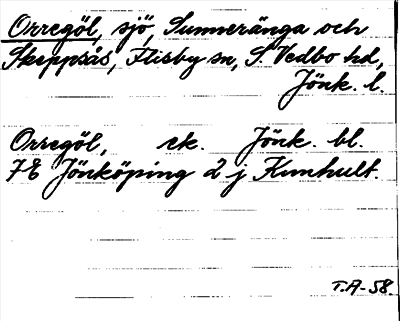 Orregöl, sjö, Sunneränga och
Skeppsås, Flisby sn, S. Vedbo hd,
Jönk. l.
Orregöl, ek. Jönk. bl.
7E Jönköping 2 j Kunhult.
T.A-58.